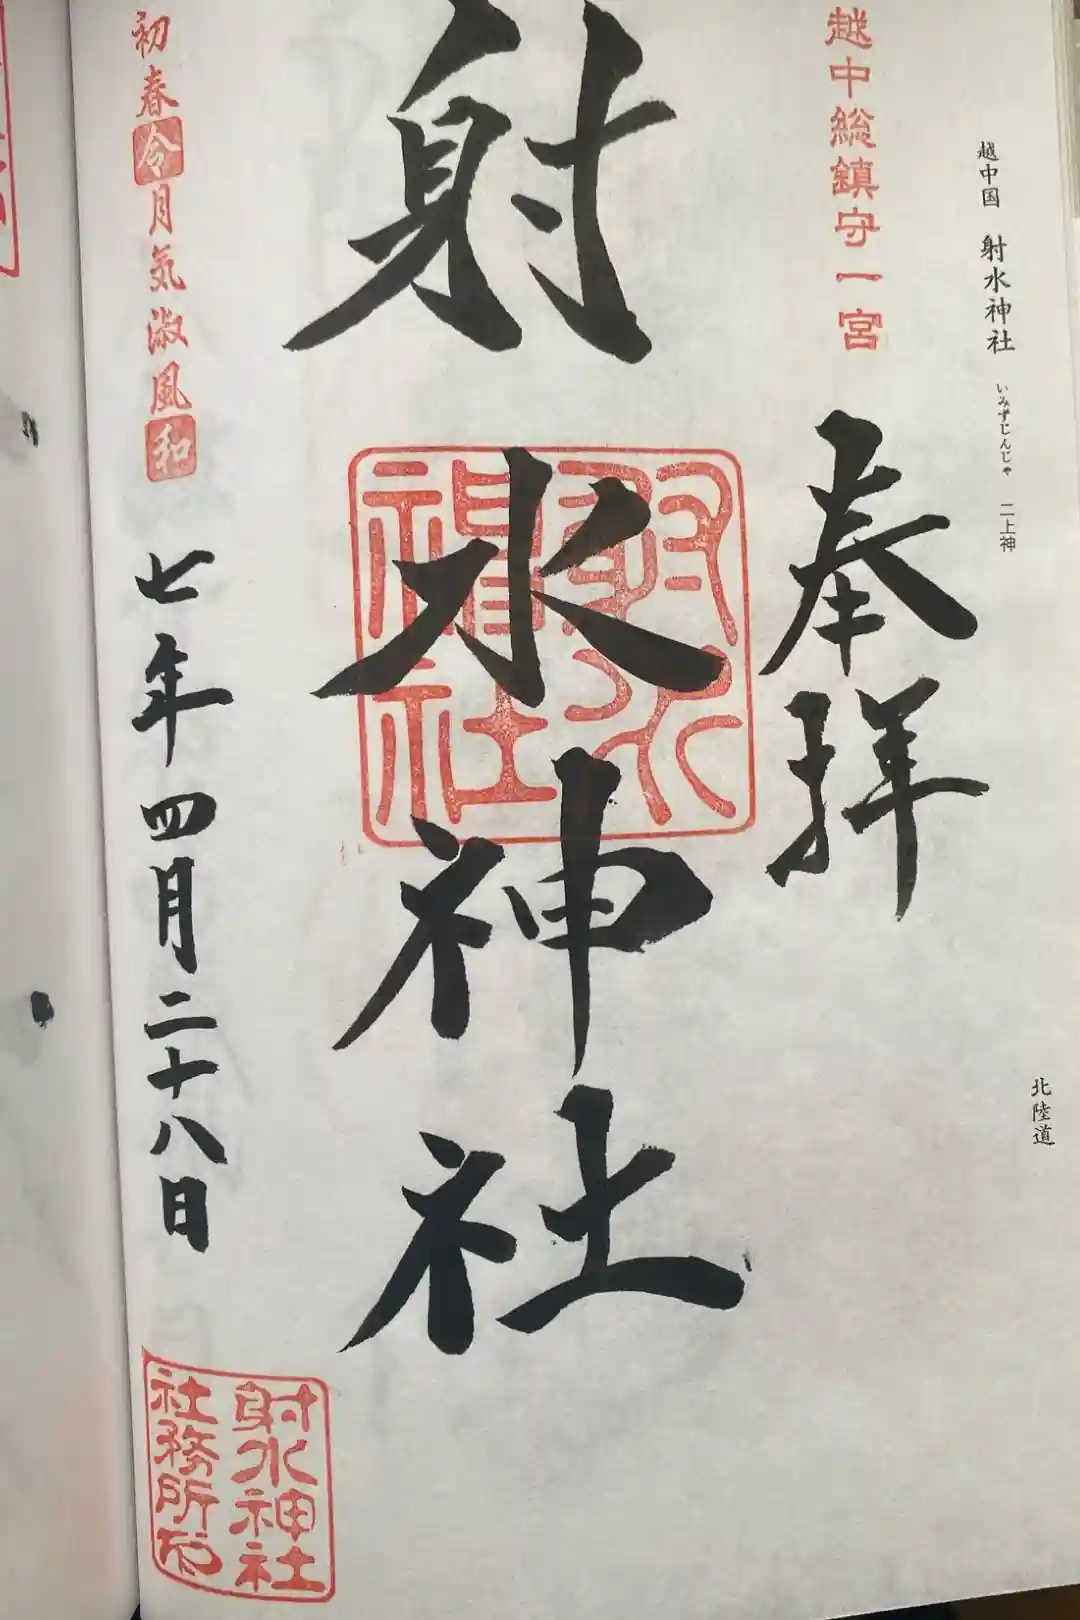 越中国 射水神社 いみずじんじゃ 二上神
北陸道
越中総鎮守一宮
奉拝
射水神社
射水神社
初春令月気淑風和
七年四月二十八日
射水神社
社務所印